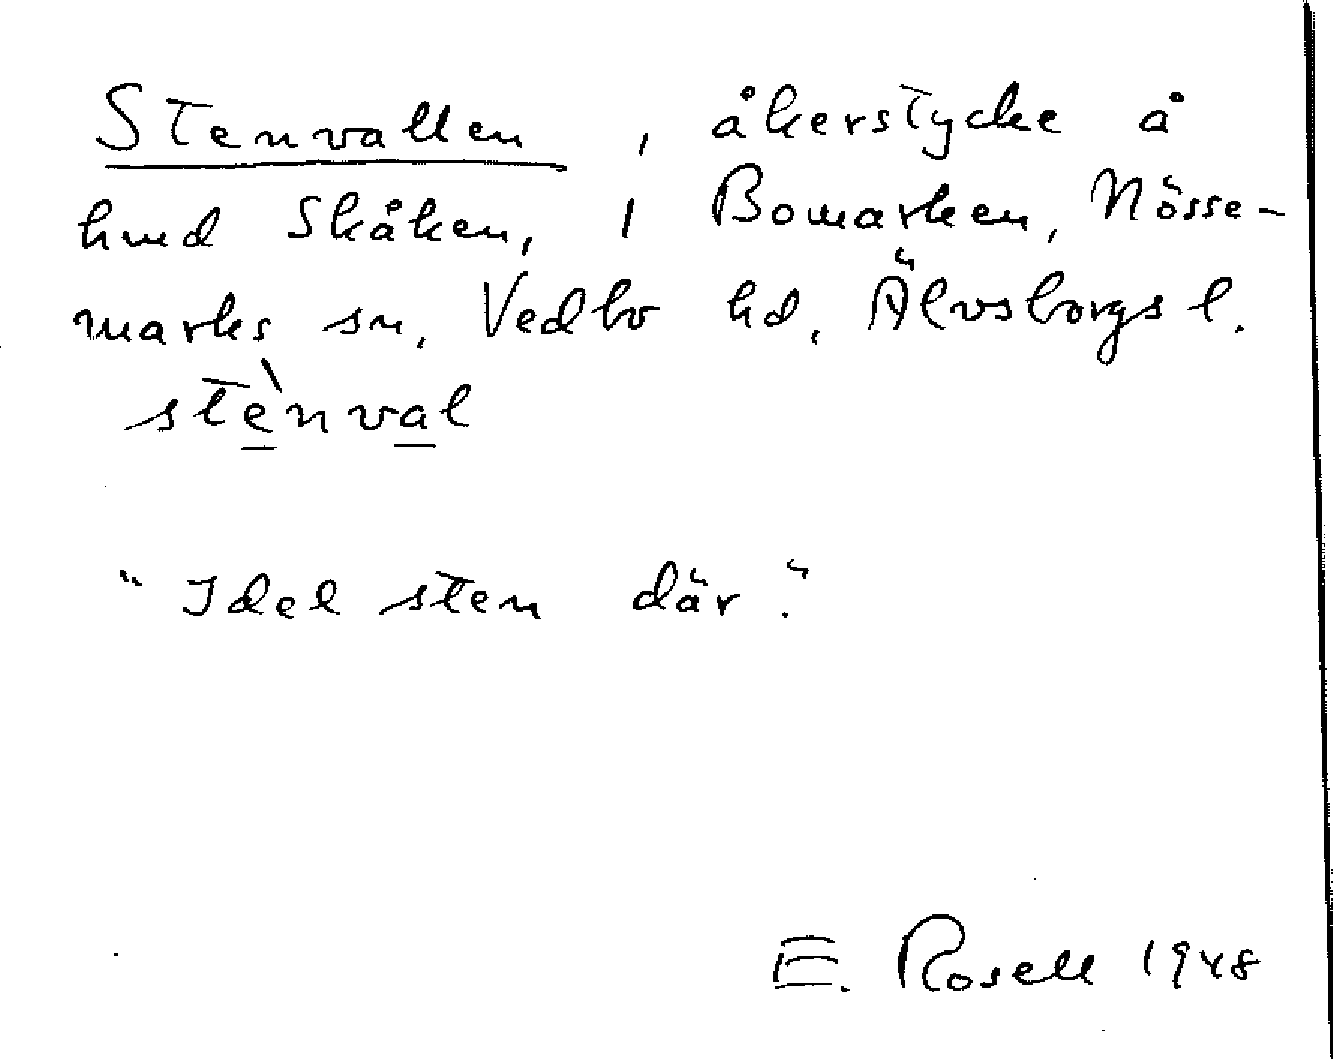 Stenvallen, åkerstycke å
hmd Skåken, i Bomarken, Nösse-
marks sn, Vedbo hd, Älvsborgs l.
stènval
"Idel sten där."
E. Rosell 1948